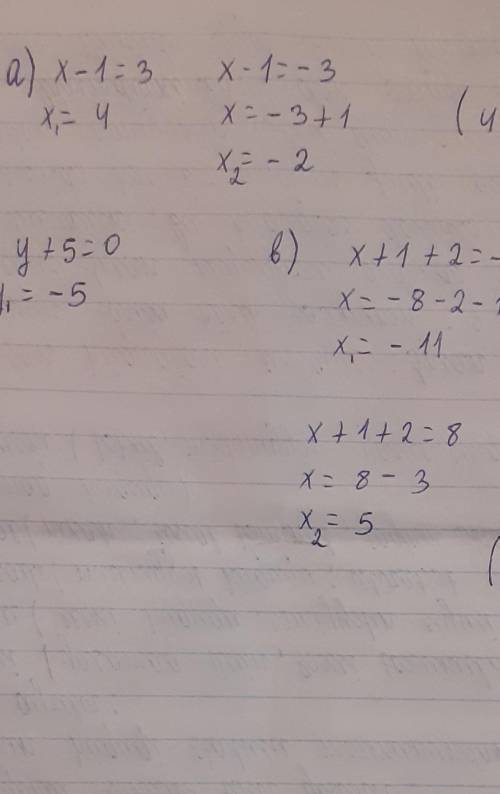 а) x - 1 = 3
x₁ = 4
x - 1 = - 3
x = - 3 + 1
x₂ = - 2
( 4
y + 5 = 0
y₁ = - 5
в) x + 1 + 2 = -
x = - 8 - 2 - 1
x₁ = - 11
x + 1 + 2 = 8
x = 8 - 3
x₂ = 5
(